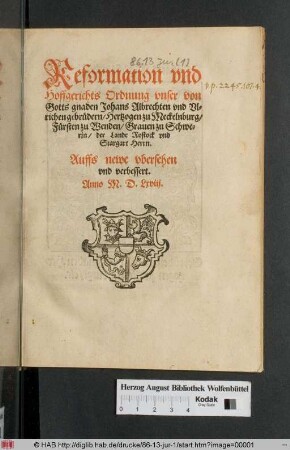 86.13 Jur. (1)
Reformation vnd
Hoffgerichts Ordnung vnser von
Gotts gnaden Johans Albrechten vnd Vl-
richen gebrüdern/ Hertzogen zu Mecklnburg/
Fürsten zu Wenden/ Grauen zu Schwe-
rin/ der Lande Rostock vnd
Stargart Herrn.
Auffs newe vbersehen
vnd verbessert.
Anno M. D. Lxviij.
Herzog August Bibliothek Wolfenbüttel
Kodak
0 1 2 3 4
© HAB http://diglib.hab.de/drucke/86-13-jur-1/start.htm?image=00001